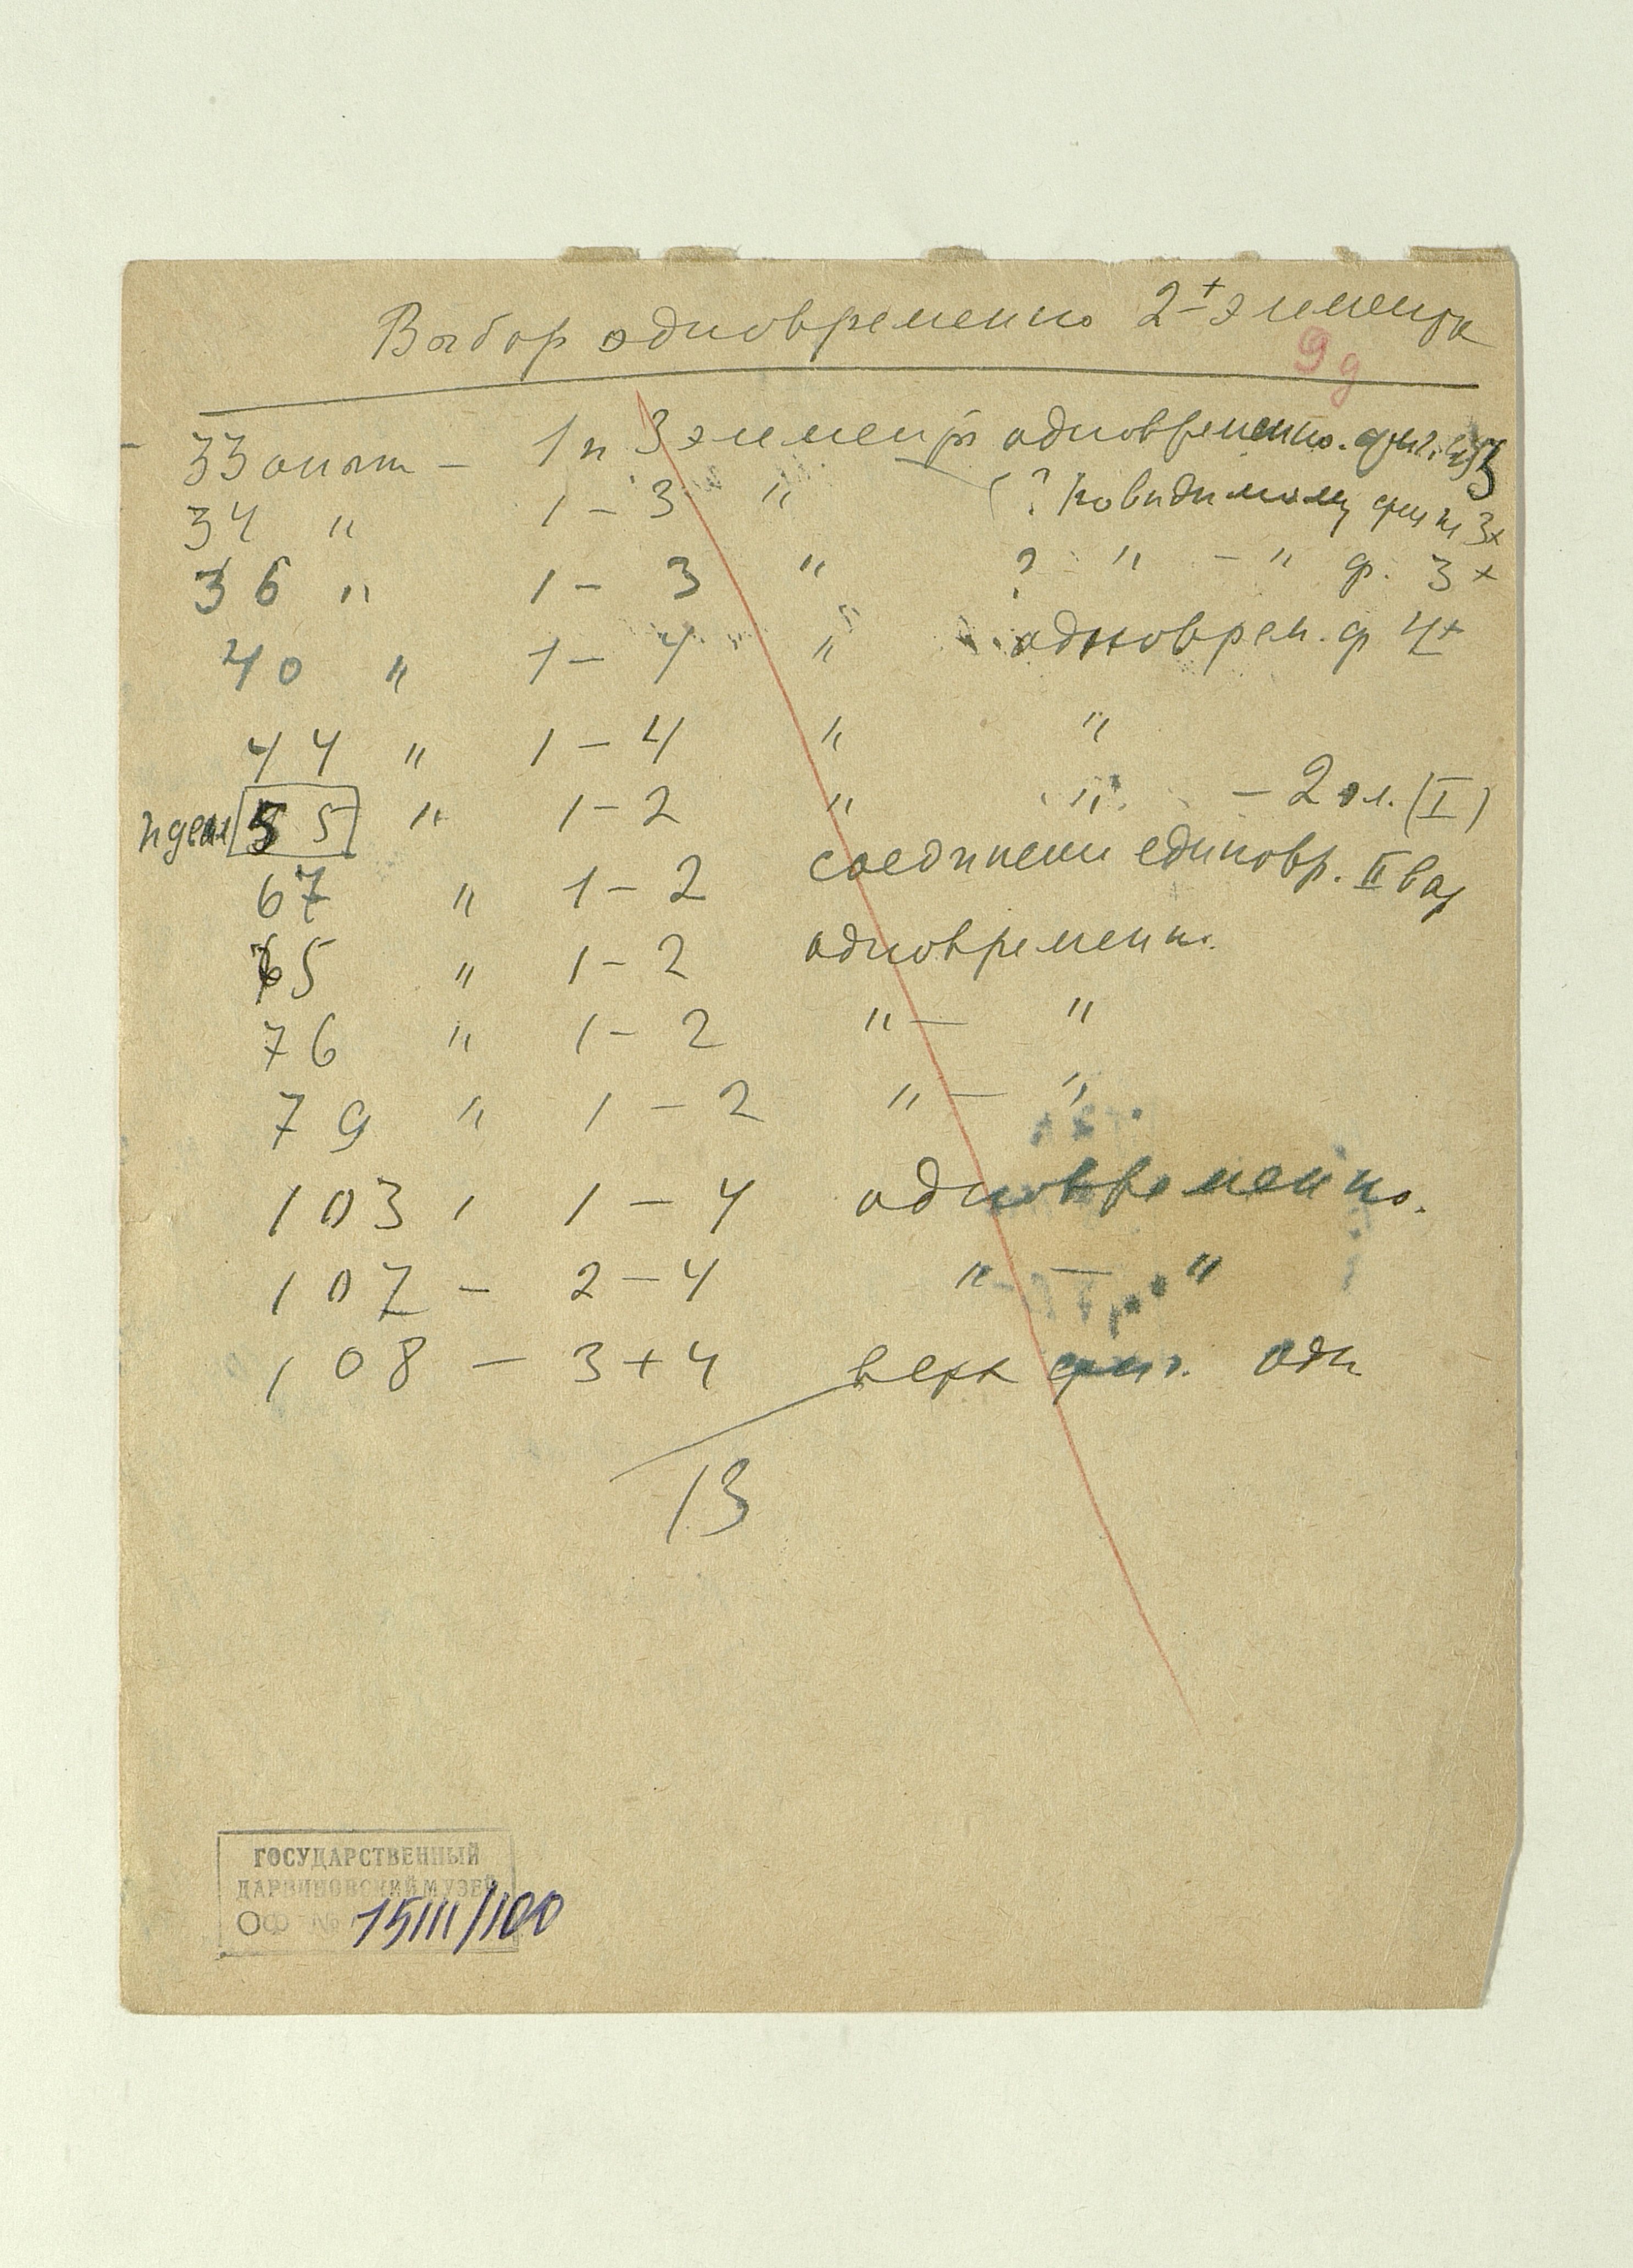 Выбор одновременно 2+ элемента
9д
33 опыт – 1 и 3 элемент одновременно. фиг. 3
34 " 1 – 3 " (? По видимому фиг 3x
36 " 1 – 3 " ? " – " ф. 3x
40 " 1 – 4 " одноврем. ф 4x
44 " 1 – 4 " "
55 " 1 – 2 " " – 2 эл. (I)
67 " 1 – 2 соединении единовр. II вар
65 " 1 – 2 одновременно.
76 " 1 – 2 " – "
79 " 1 – 2 " – "
103 ' 1 – 4 одновременно.
107 – 2 – 4 " – "
108 – 3 + 4 верх фиг. одн
13
ГОСУДАРСТВЕННЫЙ
ДАРВИНОВСКИЙ МУЗЕЙ
ОФ № 15111/100